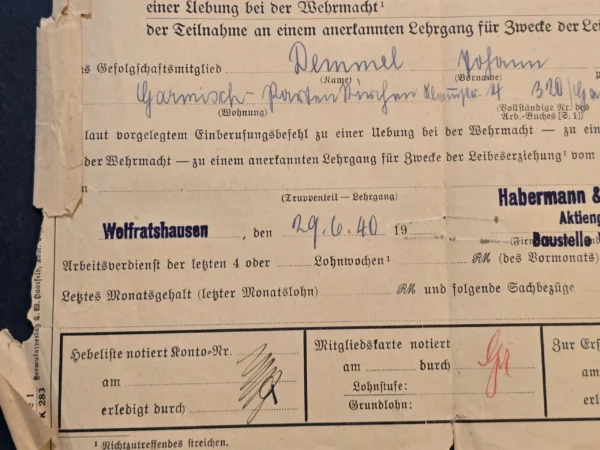 einer Uebung bei der Wehrmacht¹
der Teilnahme an einem anerkannten Lehrgang für Zwecke der Lei
s Gefolgschaftsmitglied Demmel Johann
(Name) (Vorname)
Garmisch-Partenkirchen 4 320/Ga
(Wohnung) (Vollständige Nr. des Arb.-Buches [S. 1])
laut vorgelegtem Einberufungsbefehl zu einer Uebung bei der Wehrmacht — zu ein
der Wehrmacht — zu einem anerkannten Lehrgang für Zwecke der Leibeserziehung¹ vom
n
(Truppenteil — Lehrgang)
Habermann &
Wolfratshausen, den 29.6.40 19 Aktieng
Firm
Baustelle
Arbeitsverdienst der letzten 4 oder Lohnwochen¹ RM (des Vormonats)
Letztes Monatsgehalt (letzter Monatslohn) RM und folgende Sachbezüge
Hebeliste notiert Konto-Nr.
am
erledigt durch
Mitgliedskarte notiert
am durch
Lohnstufe:
Grundlohn:
Zur Ers
am
erle
¹ Nichtzutreffendes streichen.
K 283
Formularverlag C. W. Haarfeld,